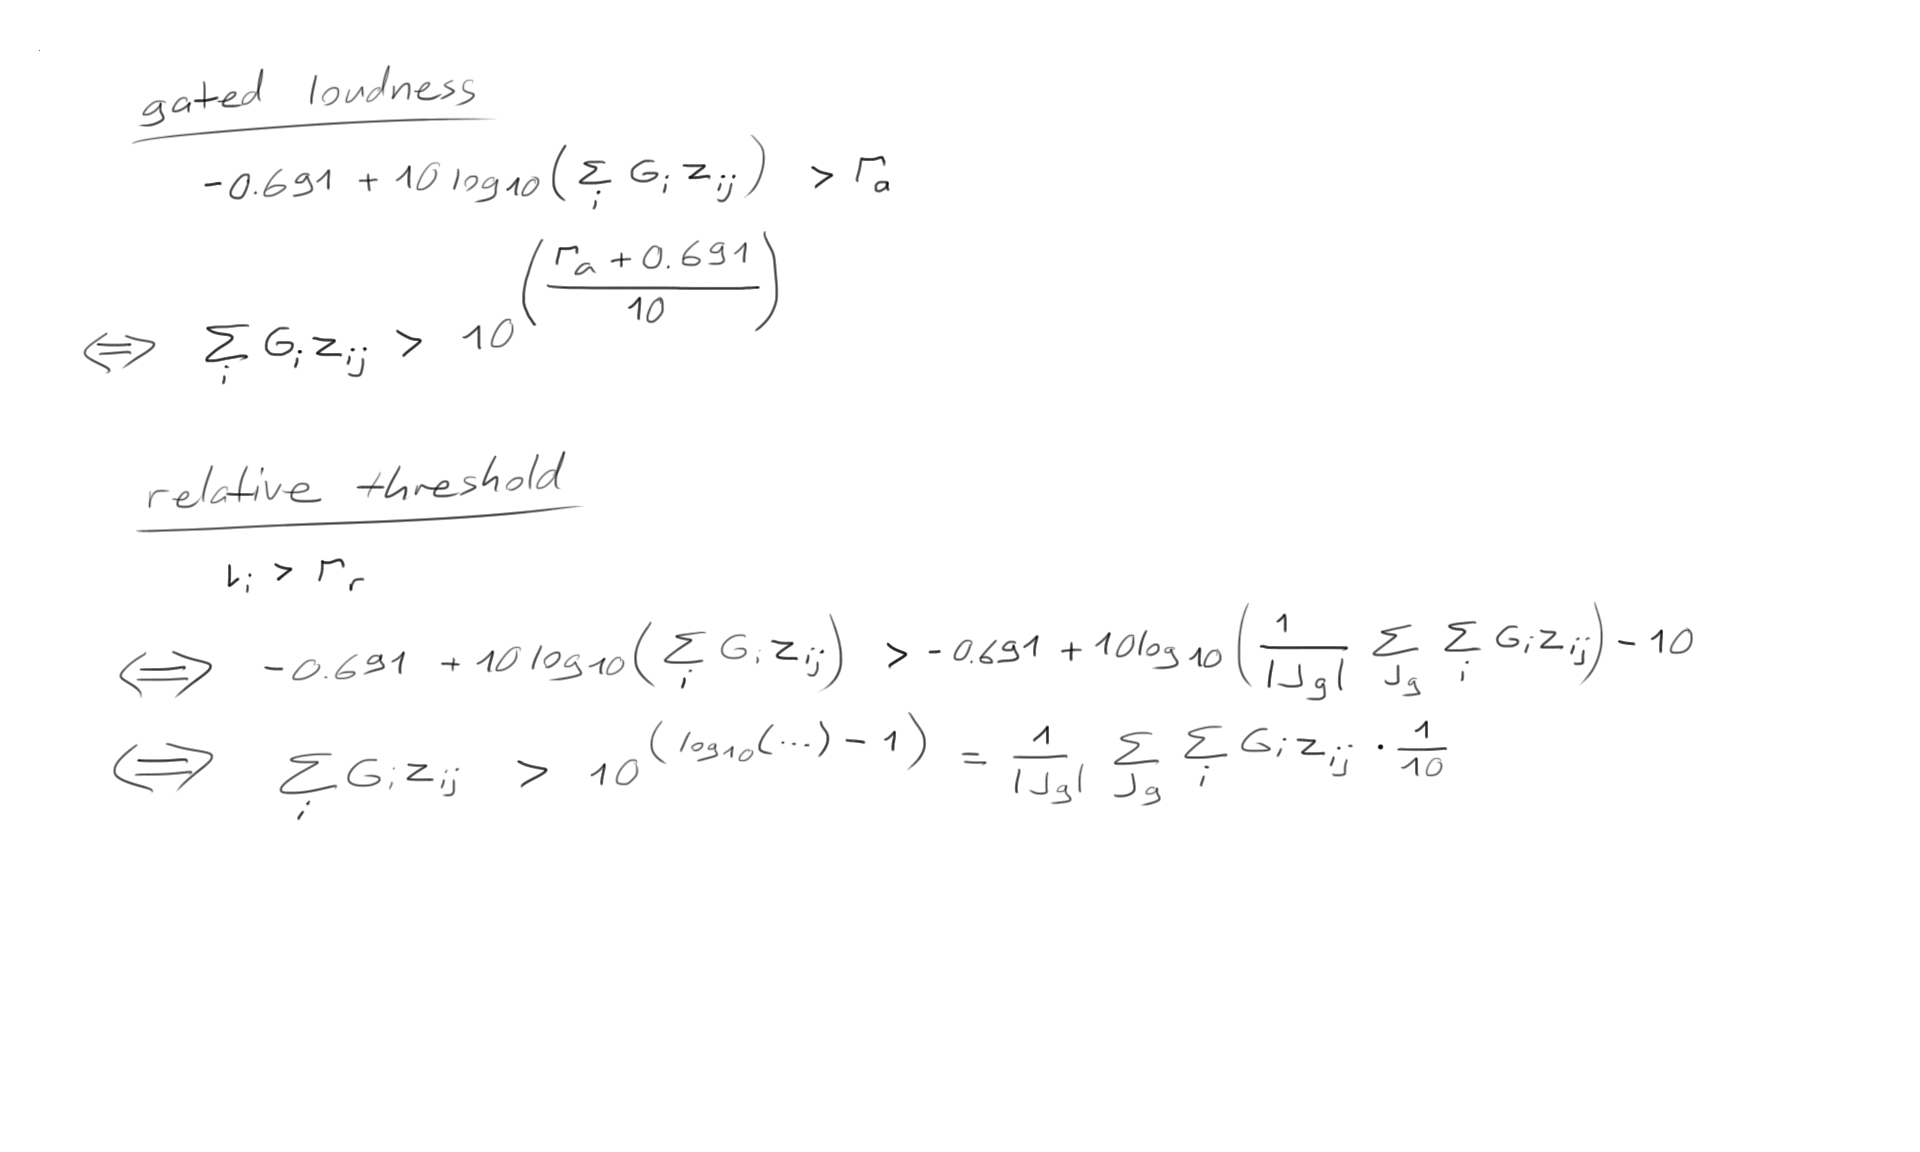 gated loudness
-0.691 + 10 log10 ( Σ_i G_i z_ij ) > Γ_a
⇔ Σ_i G_i z_ij > 10^( (Γ_a + 0.691) / 10 )
relative threshold
l_i > Γ_r
⇔ -0.691 + 10 log10 ( Σ_i G_i z_ij ) > -0.691 + 10 log10 ( 1/|J_g| Σ_J_g Σ_i G_i z_ij ) - 10
⇔ Σ_i G_i z_ij > 10^( log10(...) - 1 ) = 1/|J_g| Σ_J_g Σ_i G_i z_ij · 1/10